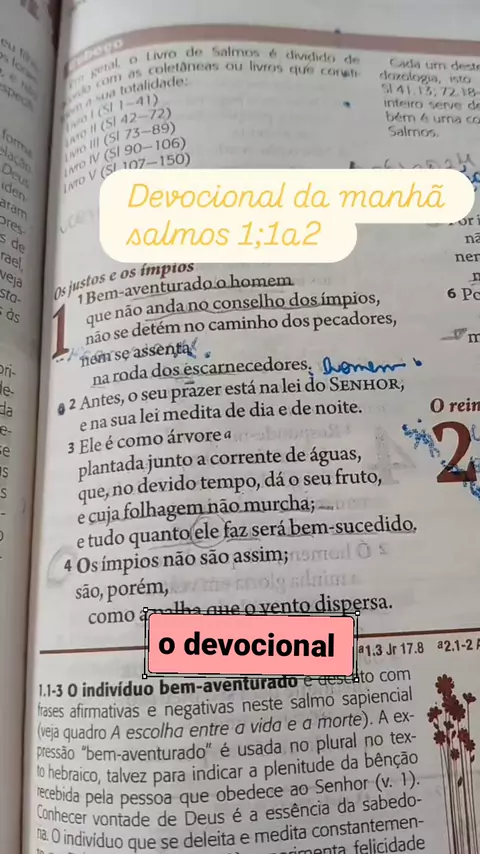 geral, o Livro de Salmos é dividido de
com as coletâneas ou livros que consti-
a sua totalidade:
Livro I (Sl 1—41)
Livro II (Sl 42—72)
Livro III (Sl 73—89)
Livro IV (Sl 90—106)
Livro V (Sl 107—150)
Cada um deste
doxologia, isto
Sl 41.13; 72.18-
inteiro serve d
bém é uma co
Salmos.
Devocional da manhã
salmos 1;1a2
Os justos e os ímpios
1 1 Bem-aventurado o homem
que não anda no conselho dos ímpios,
não se detém no caminho dos pecadores,
nem se assenta
na roda dos escarnecedores. homem
2 Antes, o seu prazer está na lei do SENHOR,
e na sua lei medita de dia e de noite.
3 Ele é como árvore a
plantada junto a corrente de águas,
que, no devido tempo, dá o seu fruto,
e cuja folhagem não murcha;
e tudo quanto ele faz será bem-sucedido.
4 Os ímpios não são assim;
são, porém,
como a palha que o vento dispersa.
6 Po
O rein
2
o devocional
a1.3 Jr 17.8 a2.1-2 A
1.1-3 O indivíduo bem-aventurado é descrito com
frases afirmativas e negativas neste salmo sapiencial
(veja quadro A escolha entre a vida e a morte). A ex-
pressão "bem-aventurado" é usada no plural no tex-
to hebraico, talvez para indicar a plenitude da bênção
recebida pela pessoa que obedece ao Senhor (v. 1).
Conhecer vontade de Deus é a essência da sabedo-
ria. O indivíduo que se deleita e medita constantemen-
felicidade